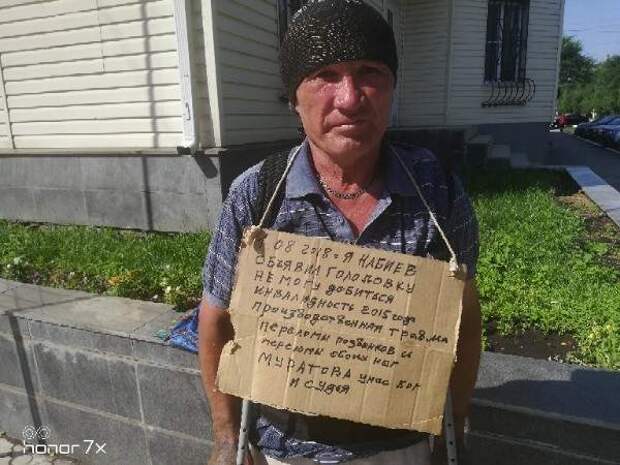 08 2018г Я НАБИЕВ
ОБЪЯВИЛ ГОЛОДОВКУ
НЕ МОГУ ДОБИТЬСЯ
ИНВАЛИДНОСТЬ 2015 года
производственная травма
Переломы позвонков и
переломы обоих ног
МУРАТОВА у нас Бог
И СУДЬЯ
honor 7x